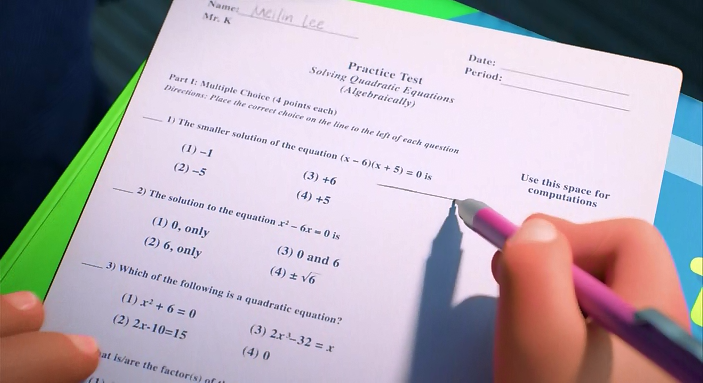 Name: Meilin Lee
Mr. K
Date:
Period:
Practice Test
Solving Quadratic Equations
(Algebraically)
Part I: Multiple Choice (4 points each)
Directions: Place the correct choice on the line to the left of each question
1) The smaller solution of the equation (x – 6)(x + 5) = 0 is
(1) –1
(2) –5
(3) +6
(4) +5
Use this space for
computations
2) The solution to the equation x² – 6x = 0 is
(1) 0, only
(2) 6, only
(3) 0 and 6
(4) ± √6
3) Which of the following is a quadratic equation?
(1) x² + 6 = 0
(2) 2x-10=15
(3) 2x³–32 = x
(4) 0
is/are the factor(s) of
(1)